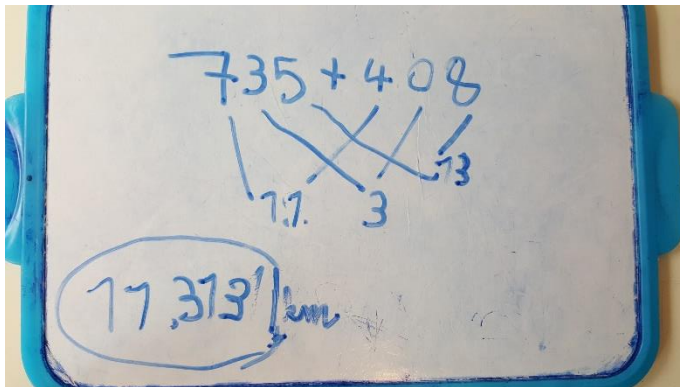 735 + 408
11 3 13
11,313 km